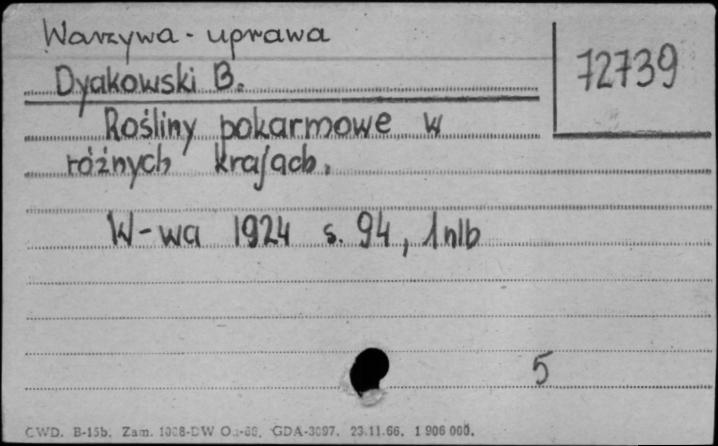 Warzywa - uprawa
72739
Dyakowski B.
Rośliny pokarmowe w
różnych krajach.
W-wa 1924 s. 94, 1 nlb
5
CWD. B-15b. Zam. GDA-3097. 23.11.66. 1 906 000.